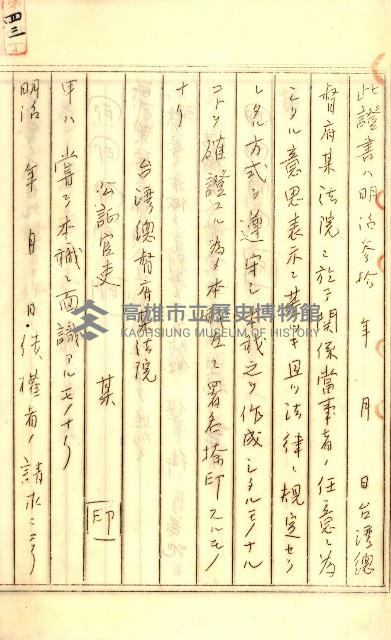 四三
此證書ハ明治参拾 年 月 日台湾總
督府某法院ニ於テ関係當事者ノ任意ニ為
シタル意思表示ニ基キ且ツ法律ノ規定セラ
レタル方式ヲ遵守シ本職之ヲ作成シタルモノナル
コトヲ確證スル為メ本職茲ニ署名捺印スルモノ
ナリ
台湾總督府某法院
公証官吏 某 印
甲ハ當ニ本職ニ面識アルモノナリ
明治 年 月 日、債權者ノ請求ニヨリ
高雄市立歷史博物館
KAOHSIUNG MUSEUM OF HISTORY